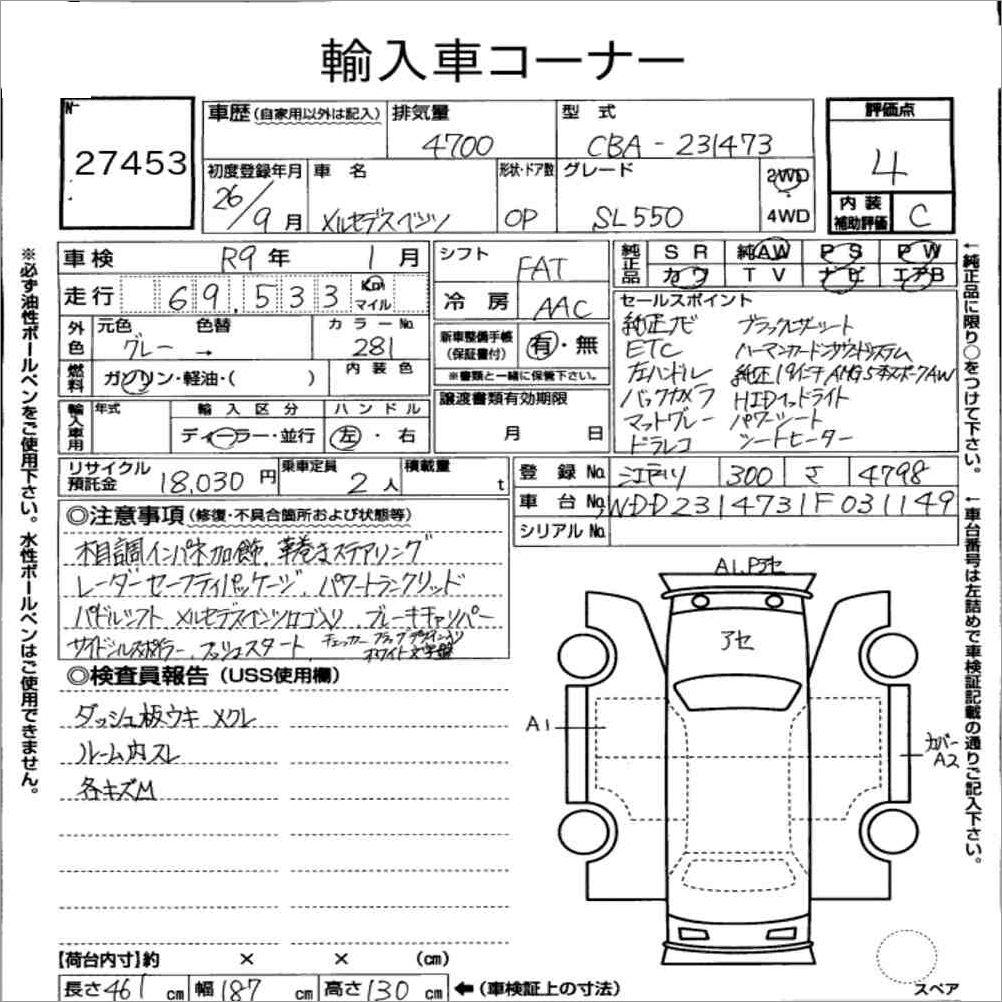 輸入車コーナー
№ 27453
車歴(自家用以外は記入) 排気量 4700 型式 CBA-231473 評価点 4
初度登録年月 26/9月 車名 メルセデスベンツ 形状・ドア数 OP グレード SL550 2WD 4WD 内装補助評価 C
車検 R9年 1月
走行 69,533 Km マイル
外色 元色 グレー 色替 → カラーNo. 281
燃料 ガソリン・軽油・( ) 内装色
輸入車用 年式 輸入区分 ディーラー・並行 ハンドル 左・右
シフト FAT
冷房 AAC
新車整備手帳(保証書付) 有・無
※書類と一緒に保管下さい。
譲渡書類有効期限
月 日
純正品 SR 純AW PS PW
カワ TV ナビ エアB
セールスポイント
純正ナビ ブラックレザーシート
ETC ハーマンカードンサウンドシステム
左ハンドル 純正19インチAMG5本スポークAW
バックカメラ HIDヘッドライト
マットグレー パワーシート
ドラレコ シートヒーター
リサイクル預託金 18,030円 乗車定員 2人 積載量 t
登録No. 江戸川 300 さ 4798
車台No. WDD2314731F031149
シリアルNo.
◎注意事項(修復・不具合箇所および状態等)
木目調インパネ加飾、革巻きステアリング
レーダーセーフティパッケージ、パワートランクリッド
パドルシフト メルセデスベンツロゴ入り ブレーキキャリパー
プッシュスタート、
ホワイト文字盤
◎検査員報告(USS使用欄)
ダッシュ板ウキ メクレ
ルーム内スレ
各キズM
A1,Pアセ
アセ
A1
カバーA2
スペア
【荷台内寸】約 × × (cm)
長さ461cm 幅187cm 高さ130cm ←(車検証上の寸法)
※必ず油性ボールペンをご使用下さい。水性ボールペンはご使用できません。
←純正品に限り○をつけて下さい。
←車台番号は左詰めで車検証記載の通りご記入下さい。